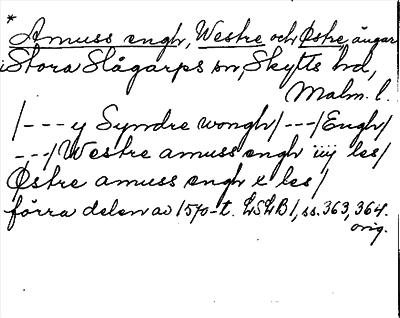 *
Amuss engh, Westre och Østre, ängar
i Stora Slågarps sn, Skytts hd,
Malm. l.
/--- y Syndre wongh/---/Engh/
---/Westre amuss engh iiij les/
Østre amuss engh x les/
förra delen av 1570-t. LSLB1, ss. 363, 364.
orig.